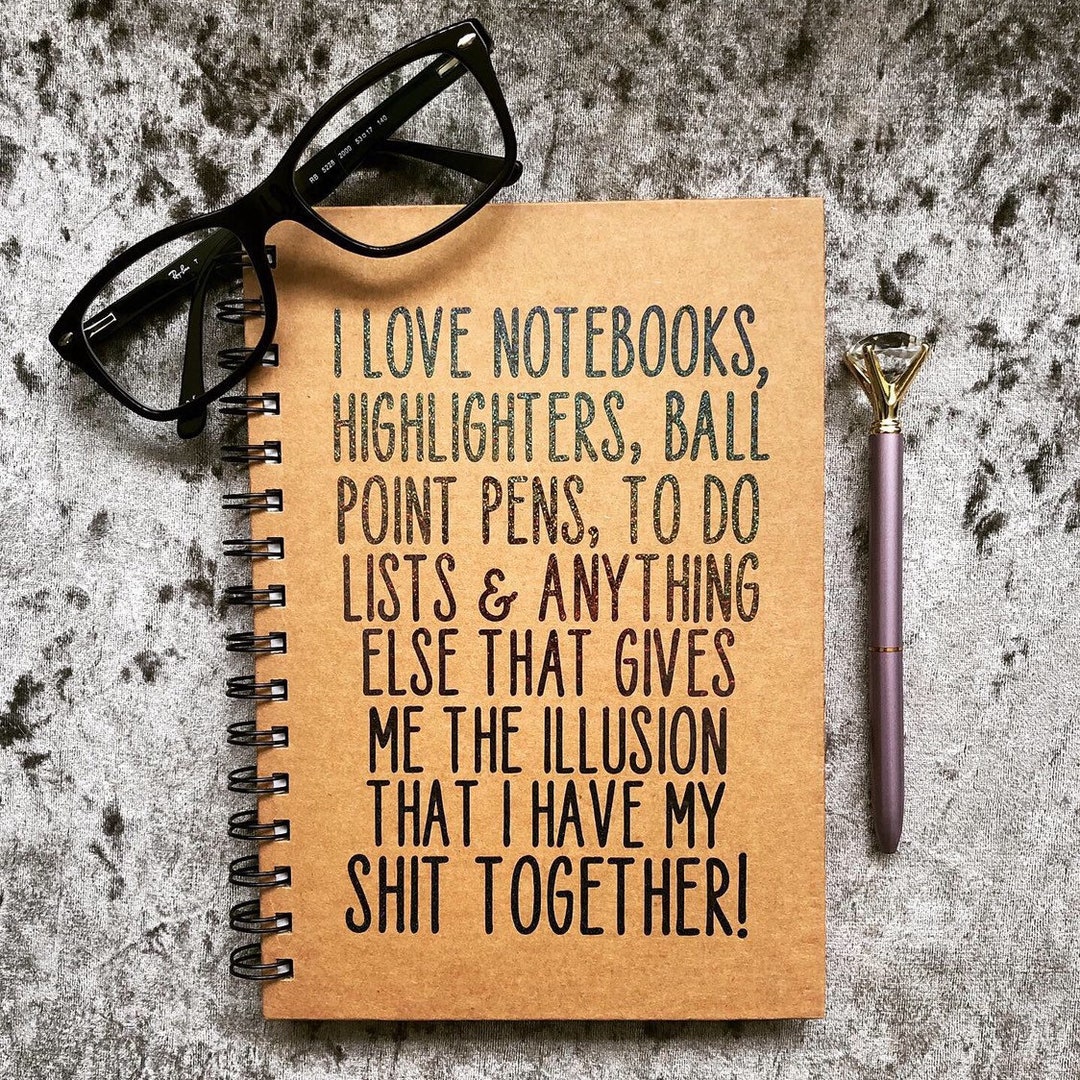 RB 5228 2000 53□17 140
Ray-Ban
I LOVE NOTEBOOKS,
HIGHLIGHTERS, BALL
POINT PENS, TO DO
LISTS & ANYTHING
ELSE THAT GIVES
ME THE ILLUSION
THAT I HAVE MY
SHIT TOGETHER!